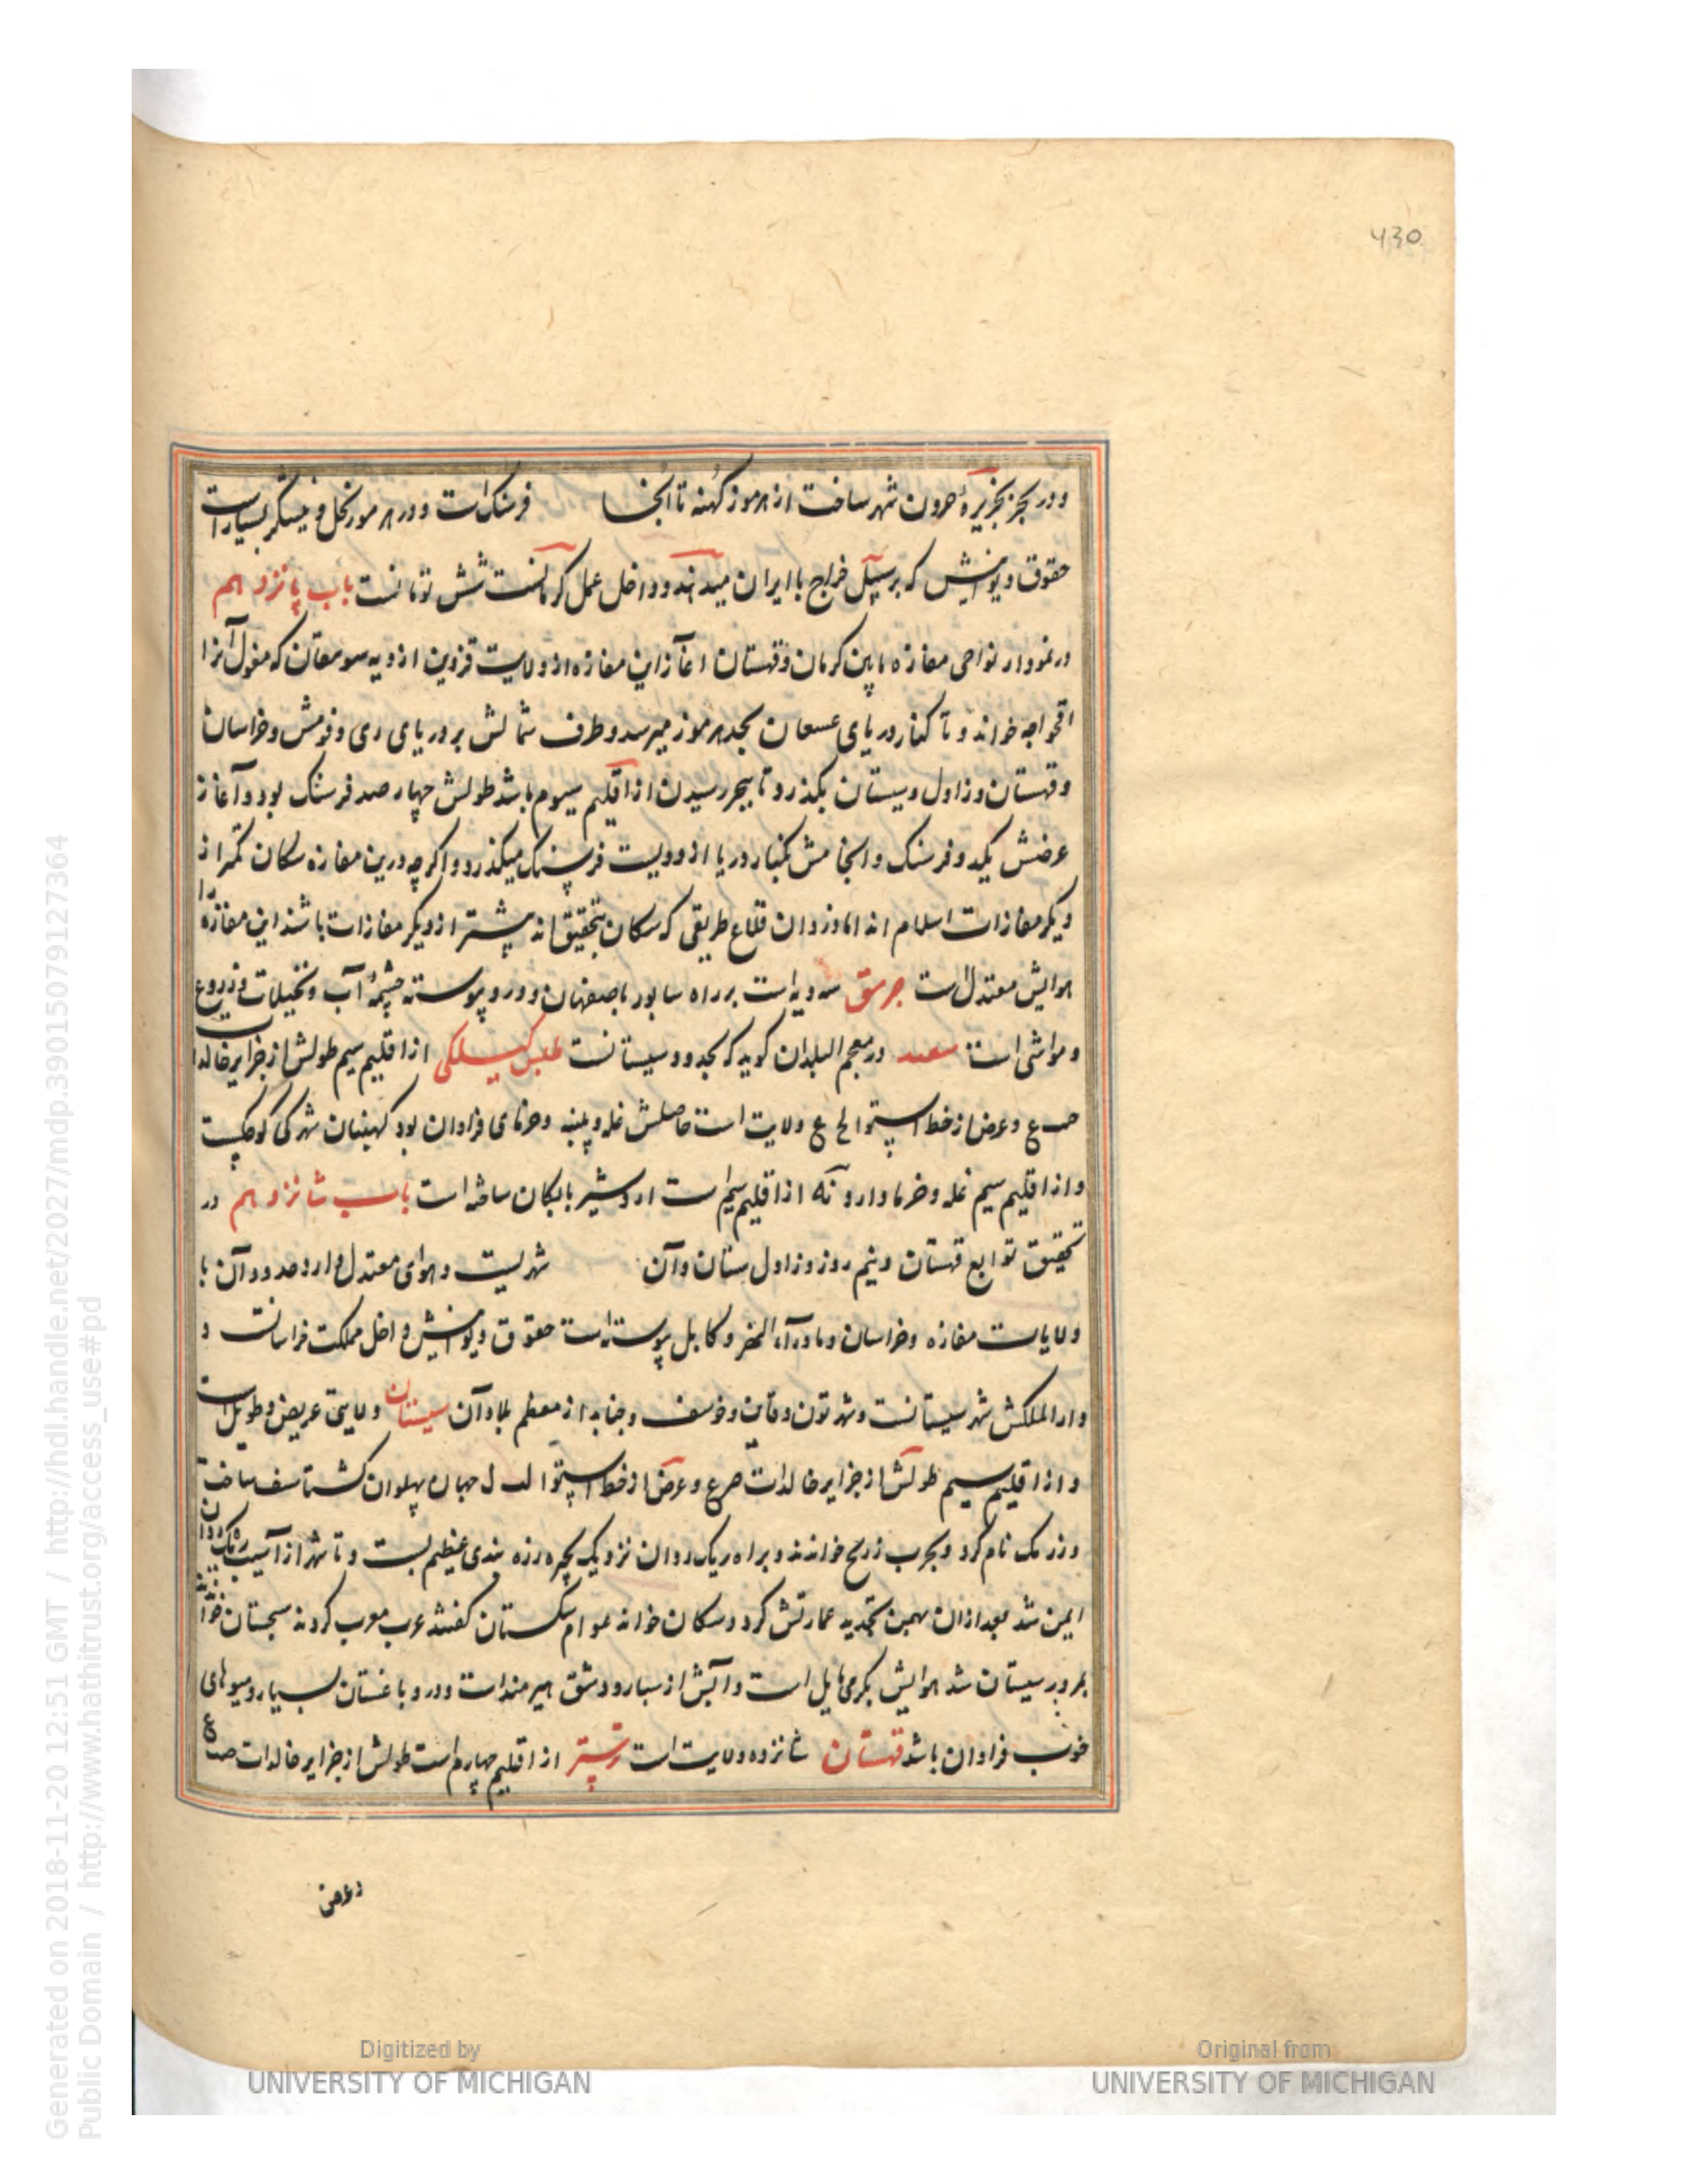 430
ودر بحر بجزیرهٔ جرون شهر ساخت از هرموز کهنه تا آنجا فرسنک است ودر هرموز نخل و نیشکر بسیار است
حقوق دیوانیش که بر سبیل خراج با ایران میدهند و داخل عمل کرمانست شش تومانست باب پانزدهم
در نمودار نواحی مفازه مابین کرمان و قهستان آغاز این مفازه از ولایت قزوین از دیه سومغان که مغول آنرا
اقخواجه خوانند و تا کنار دریای عمان بحد هرموز میرسد و طرف شمالش بر دریای ری و قومش و خراسان
و قهستان و زاول و سیستان بگذرد تا ببحر رسیدن از اقلیم سیوم باشد طولش چهار صد فرسنک بود و آغاز
عرضش یکد و فرسنک و انجامش بکنار دریا از دویست فرسنک میگذرد و اکرچه درین مفازه سکان کمتر از
دیکر مفازات اسلام اند اما دزدان قلاع طریقی که سکان بتحقیق اند بیشتر از دیکر مفازات باشند این مفازه را
هوایش معتدل است جرمق سه دیه است بر راه سابور باصفهان و درو پیوسته چشمهٔ آب و نخیلات و زروع
و مواشی است در معجم البلدان کوید که بحدود سیستانست طبس کیلکی از اقلیم سیم طولش از جزایر خالدا
و عرض از خط استوا لح ع ولایت است حاصلش غله و پنبه و خرمای فراوان بود کهنبنان شهرکی کوچکست
و از اقلیم سیم غله و خرما دارد نه از اقلیم سیم است اردشیر بابکان ساخته است باب شانزدهم در
تحقیق توابع قهستان و نیم روز و زاولستان و آن شهریست و هوای معتدل دارد حدود آن با
ولایات مفازه و خراسان و ماورآء النهر و کابل پیوسته است حقوق دیوانیش داخل مملکت خراسانست و
دار الملکش شهر سیستانست و شهر تون و قاین و خوسف و جنابد از معظم بلاد آن سیستان ولایتی عریض و طویل است
و از اقلیم سیم طولش از جزایر خالدات صرع و عرض از خط استوا لب ل جهان پهلوان کشتاسف ساخت
و زرنک نام کرد و بعرب زرنج خوانند و براه ریک روان نزدیک بحیره زره بندی عظیم بست و تا شهر از آسیب ریک روان
ایمن شد بعد ازان بهمن تجدید عمارتش کرد و سکان خواند عوام سکستان کفتند عرب معرب کردند سجستان خواندند
بمرور سیستان شد هوایش بکرمی مایل است و آبش از سیاه رود شق هیرمند است ودرو باغستان بسیار و میوهای
خوب فراوان باشد قهستان شانزده ولایت است ترشیز از اقلیم چهارم است طولش از جزایر خالدات
و عرض
Digitized by
UNIVERSITY OF MICHIGAN
Original from
UNIVERSITY OF MICHIGAN
Generated on 2018-11-20 12:51 GMT / http://hdl.handle.net/2027/mdp.39015079127364
Public Domain / http://www.hathitrust.org/access_use#pd